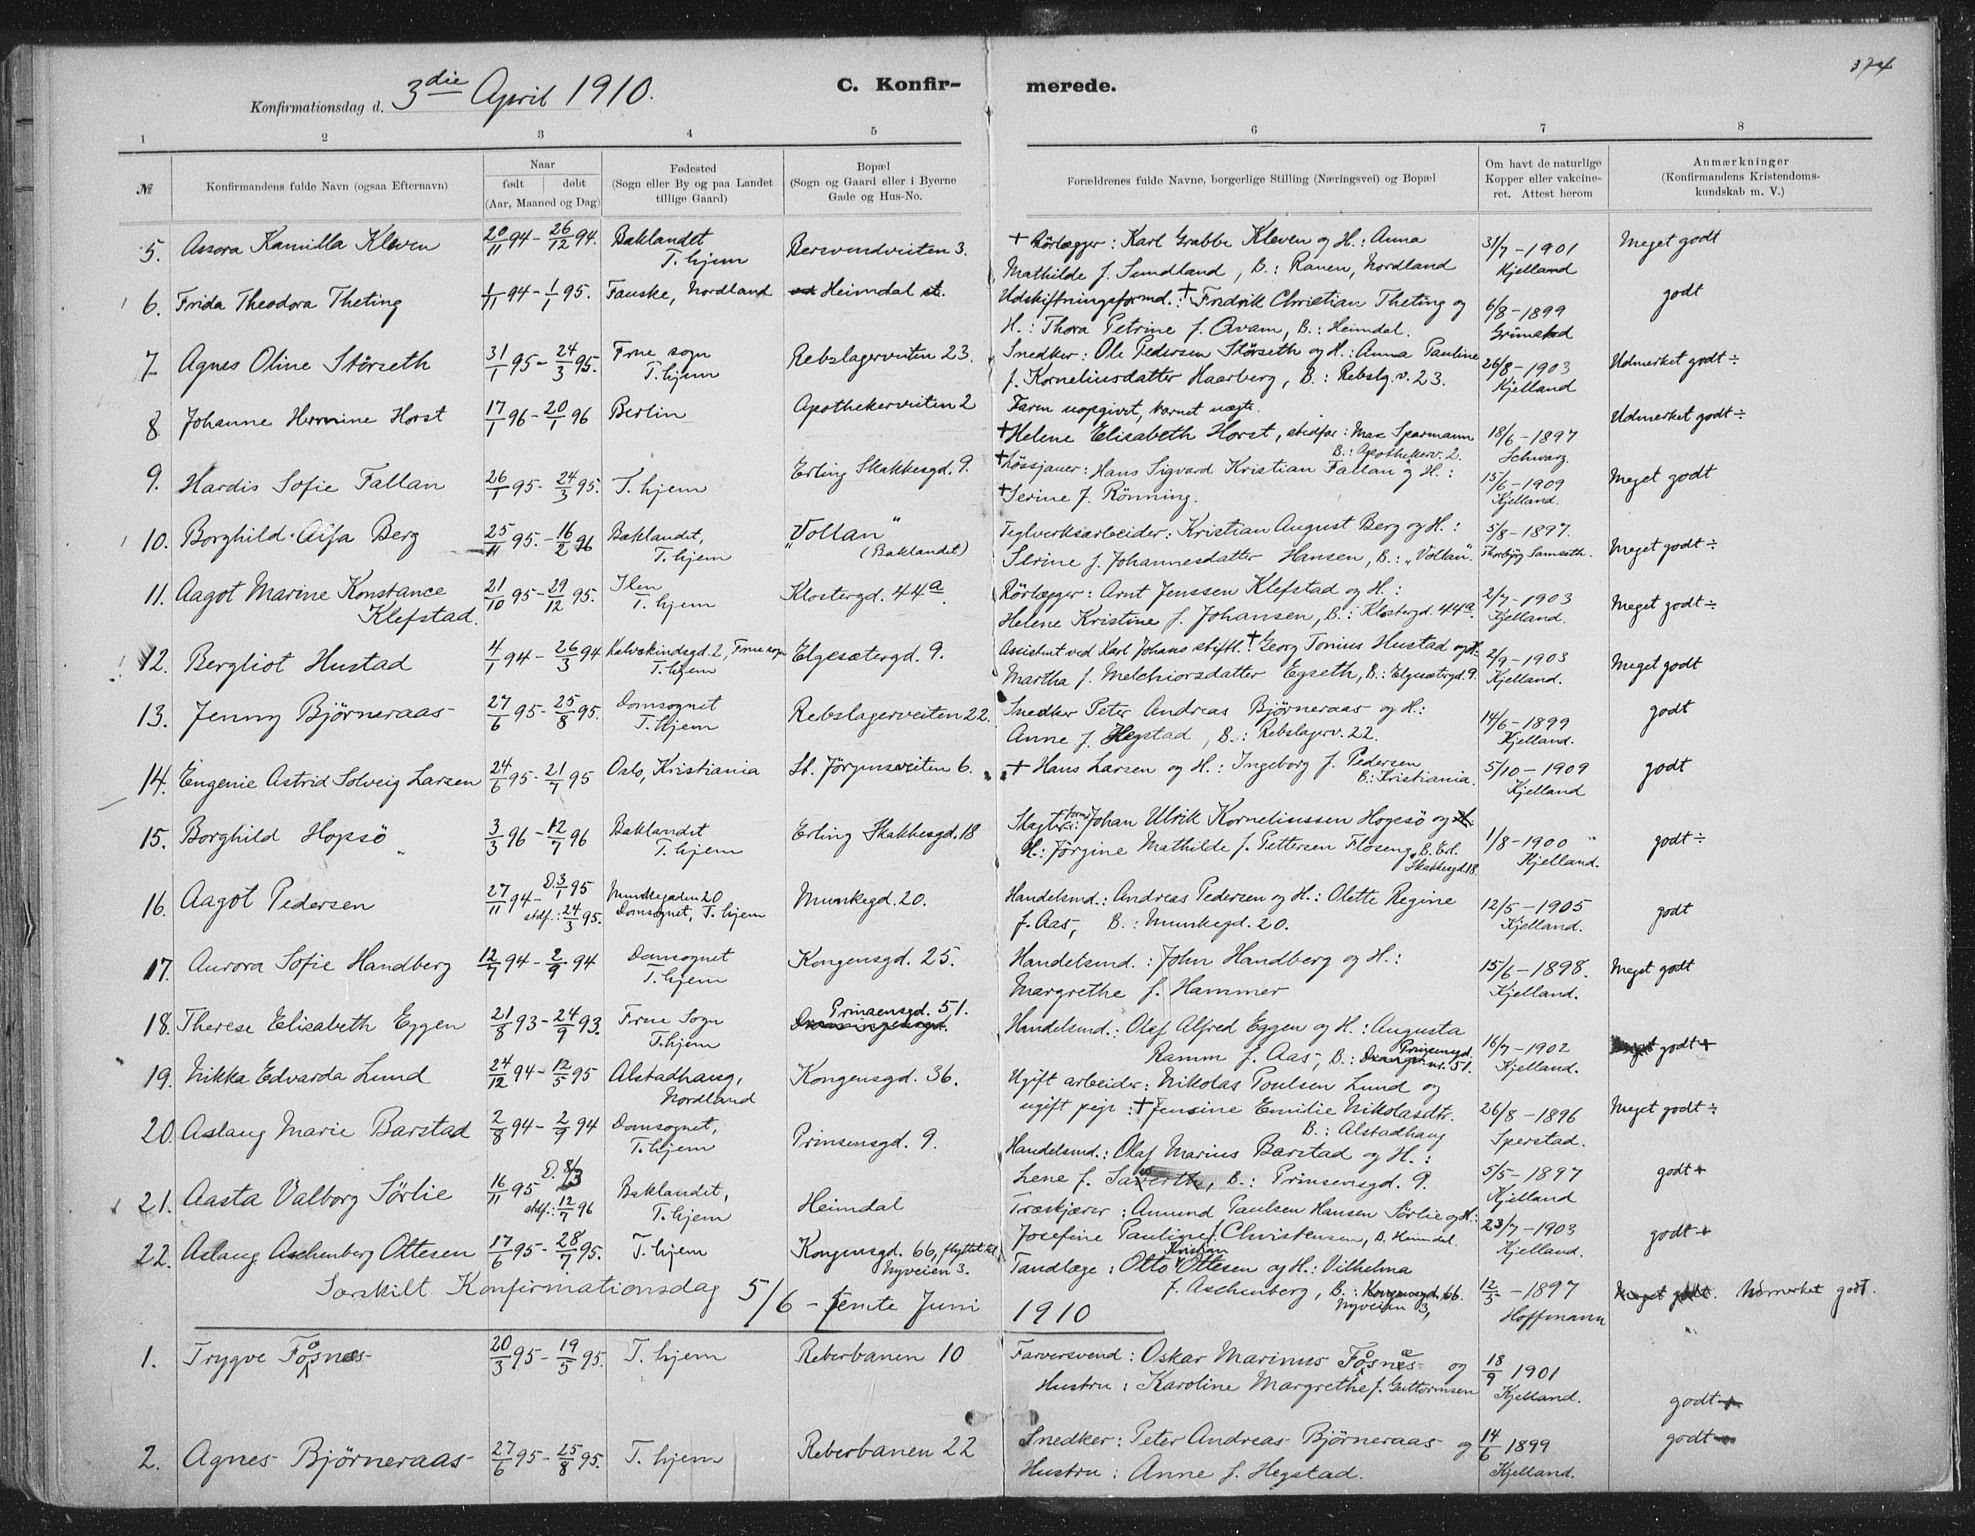 374
Konfirmationsdag d. 3die April 1910.
C. Konfirmerede.
1 2 3 4 5 6 7 8
№ Konfirmandens fulde Navn (ogsaa Efternavn) Naar født døbt (Aar, Maaned og Dag) Fødested (Sogn eller By og paa Landet tillige Gaard) Bopæl (Sogn og Gaard eller i Byerne Gade og Hus-No. Forældrenes fulde Navne, borgerlige Stilling (Næringsvei) og Bopæl Om havt de naturlige Kopper eller vakcineret. Attest herom Anmærkninger (Konfirmandens Kristendomskundskab m. V.)
5. Assora Kamilla Kleven 20/11 94 - 26/12 94. Baklandet T.hjem Bersvendveiten 3. + Rörlægger: Karl Grabbe Kleven og H.: Anna Mathilde f. Sundland, B.: Ranen, Nordland 31/7 - 1901 Kjelland Meget godt
6. Frida Theodora Theting 1/11 94 - 1/1 95. Fauske, Nordland Heimdal st. Udskiftningsformd.: + Fredrik Christian Theting og H.: Thora Petrine f. Qvam, B.: Heimdal. 6/8 - 1899 godt
7 Agnes Oline Störseth 31/1 95 - 24/3 95. Frue sogn T.hjem Rebslagerveiten 23. Snedker: Ole Pedersen Störseth og H.: Anna Pauline f. Korneliusdatter Haarberg, B.: Rebslg.v. 23. 26/8 - 1903 Kjelland Udmerket godt ÷
8 Johanne Hermine Horst 17/1 96 - 20/1 96 Berlin Apothekerveiten 2 Faren uopgivet, barnet uægte. + Helene Elisabeth Horst, stedfar: Max Sparmann B.: Apothekerv. 2. 18/6 - 1897 Schwarz. Udmerket godt ÷
9. Hardis Sofie Fallan 26/1 95 - 24/3 95. T. hjem Erling Skakkesgd. 9. + Løssjauer: Hans Sigvard Kristian Fallan og H.: + Serine f. Rönning. 15/6 - 1909 Kjelland. Meget godt
10. Borghild Alfa Berg 25/11 95. - 16/2 96 Baklandet, T.hjem "Vollan" (Baklandet) Teglverksarbeider: Kristian August Berg og H.: Serine f. Johannesdatter Hansen, B.: "Vollan". 5/8 - 1897. Meget godt ÷
11. Aagot Marine Konstance Klefstad. 21/10 95 - 29/12 95. Ilen T. hjem Klostergd. 44a. Rörlægger: Arnt Jenssen Klefstad og H.: Helene Kristine f. Johansen, B.: Klostergd. 44a. 2/7 - 1903 Kjelland. Meget godt ÷
12. Bergliot Hustad 4/1 94 - 26/3 94 Kalvskindsgd. 2, Frue sogn T.hjem Elgesætergd. 9. Assistent ved Karl Johans stiftl. + Georg Tonius Hustad og H. Martha f. Melchiorsdatter Egseth, B.: Elgesætergd. 9. 2/9 - 1903 Kjelland. Meget godt
13. Jenny Björneraas 27/6 95 - 25/8 95. Domsognet T.hjem Rebslagerveiten 22. Snedker Peter Andreas Björneraas og H.: Anne f. Hegstad, B.: Rebslagerv. 22. 14/6 - 1899 Kjelland. godt
14. Engenie Astrid Solveig Larsen 24/6 95 - 21/7 95 Oslo, Kristiania St. Jörgensveiten 6. + Hans Larsen og H.: Ingeborg f. Pedersen B.: Kristiania. 5/10 - 1909 Kjelland godt
15. Borghild Hopsö 3/3 96 - 12/7 96 Baklandet T.hjem Erling Skakkesgd. 18 Johan Ulrik Korneliussen Hopsö og H.: Jörgine Mathilde f. Pettersen Floseng, B. Erl. Skakkesgd. 18. 1/8 - 1900 Kjelland. godt ÷
16. Aagot Pedersen 27/11 94 - D. 3/1 95 stdf.: 24/3 95. Munkegaden 20 Domsognet, T.hjem Munkegd. 20. Handelsmd.: Andreas Pedersen og H.: Olette Regine f. Aas, B.: Munkegd. 20. 12/5 - 1905 Kjelland. godt
17. Aurora Sofie Handberg 12/7 94 - 2/9 94 Domsognet T.hjem Kongensgd. 25. Handelsmd.: John Handberg og H.: Margrethe f. Hammer 15/6 - 1898. Kjelland. Meget godt
18. Therese Elisabeth Eggen 21/8 93 - 24/9 93. Frue Sogn T.hjem Prinsensgd. 51. Handelsmd.: Olaf Alfred Eggen og H.: Augusta Ramm f. Aas, B.: Prinsensgd. 51. 16/7 - 1902 Kjelland. godt +
19. Nikka Edvarda Lund 24/12 94 - 12/5 95 Alstadhaug, Nordland Kongensgd. 36. Ugift arbeider: Nikolas Poulsen Lund og ugift pige: + Jensine Emilie Nikolasdtr. B.: Alstadhaug 26/8 - 1896 Sperstad. Meget godt ÷
20 Aslaug Marie Barstad 2/8 94 - 2/9 94 Domsognet, T.hjem Prinsensgd. 9. Handelsmd.: Olaf Marius Barstad og H.: Lene f. B.: Prinsensgd. 9. 5/5 - 1897 Kjelland godt +
21. Aasta Valborg Sörlie 16/11 95 D. 8/3 stdf.: 12/7 96 Baklandet, T.hjem Heimdal Træskjærer: Amund Paulsen Hansen Sörlie og H.: Josefine Pauline f. Christensen, B. Heimdal. 23/7 - 1903 Kjelland. godt +
22. Aslaug Aschenberg Ottesen 17/6 95 - 28/7 95. T.hjem Kongensgd. 66, flyttet til Nyveien 3. Tandlæge: Otto Kristian Ottesen og H.: Vilhelma f. Aschenberg, B.: Kongensgd. 66. Nyveien 3, 12/5 - 1897 Hoffmann Meget godt. Udmerket godt.
Særskilt Konfirmationsdag 5/6 - femte Juni 1910
1. Trygve Fosnæs 20/3 95 - 19/5 95. T. hjem Reberbanen 10 Farversvend: Oskar Marinus Fosnæs og Hustru: Karoline Margrethe f. Guttormsen 18/9 1901 Kjelland. godt +
2. Agnes Björneraas 27/6 95 - 25/8 95. T. hjem Reberbanen 22 Snedker: Peter Andreas Björneraas og Hustru: Anne f. Hegstad. 14/6 1899 Kjelland. godt